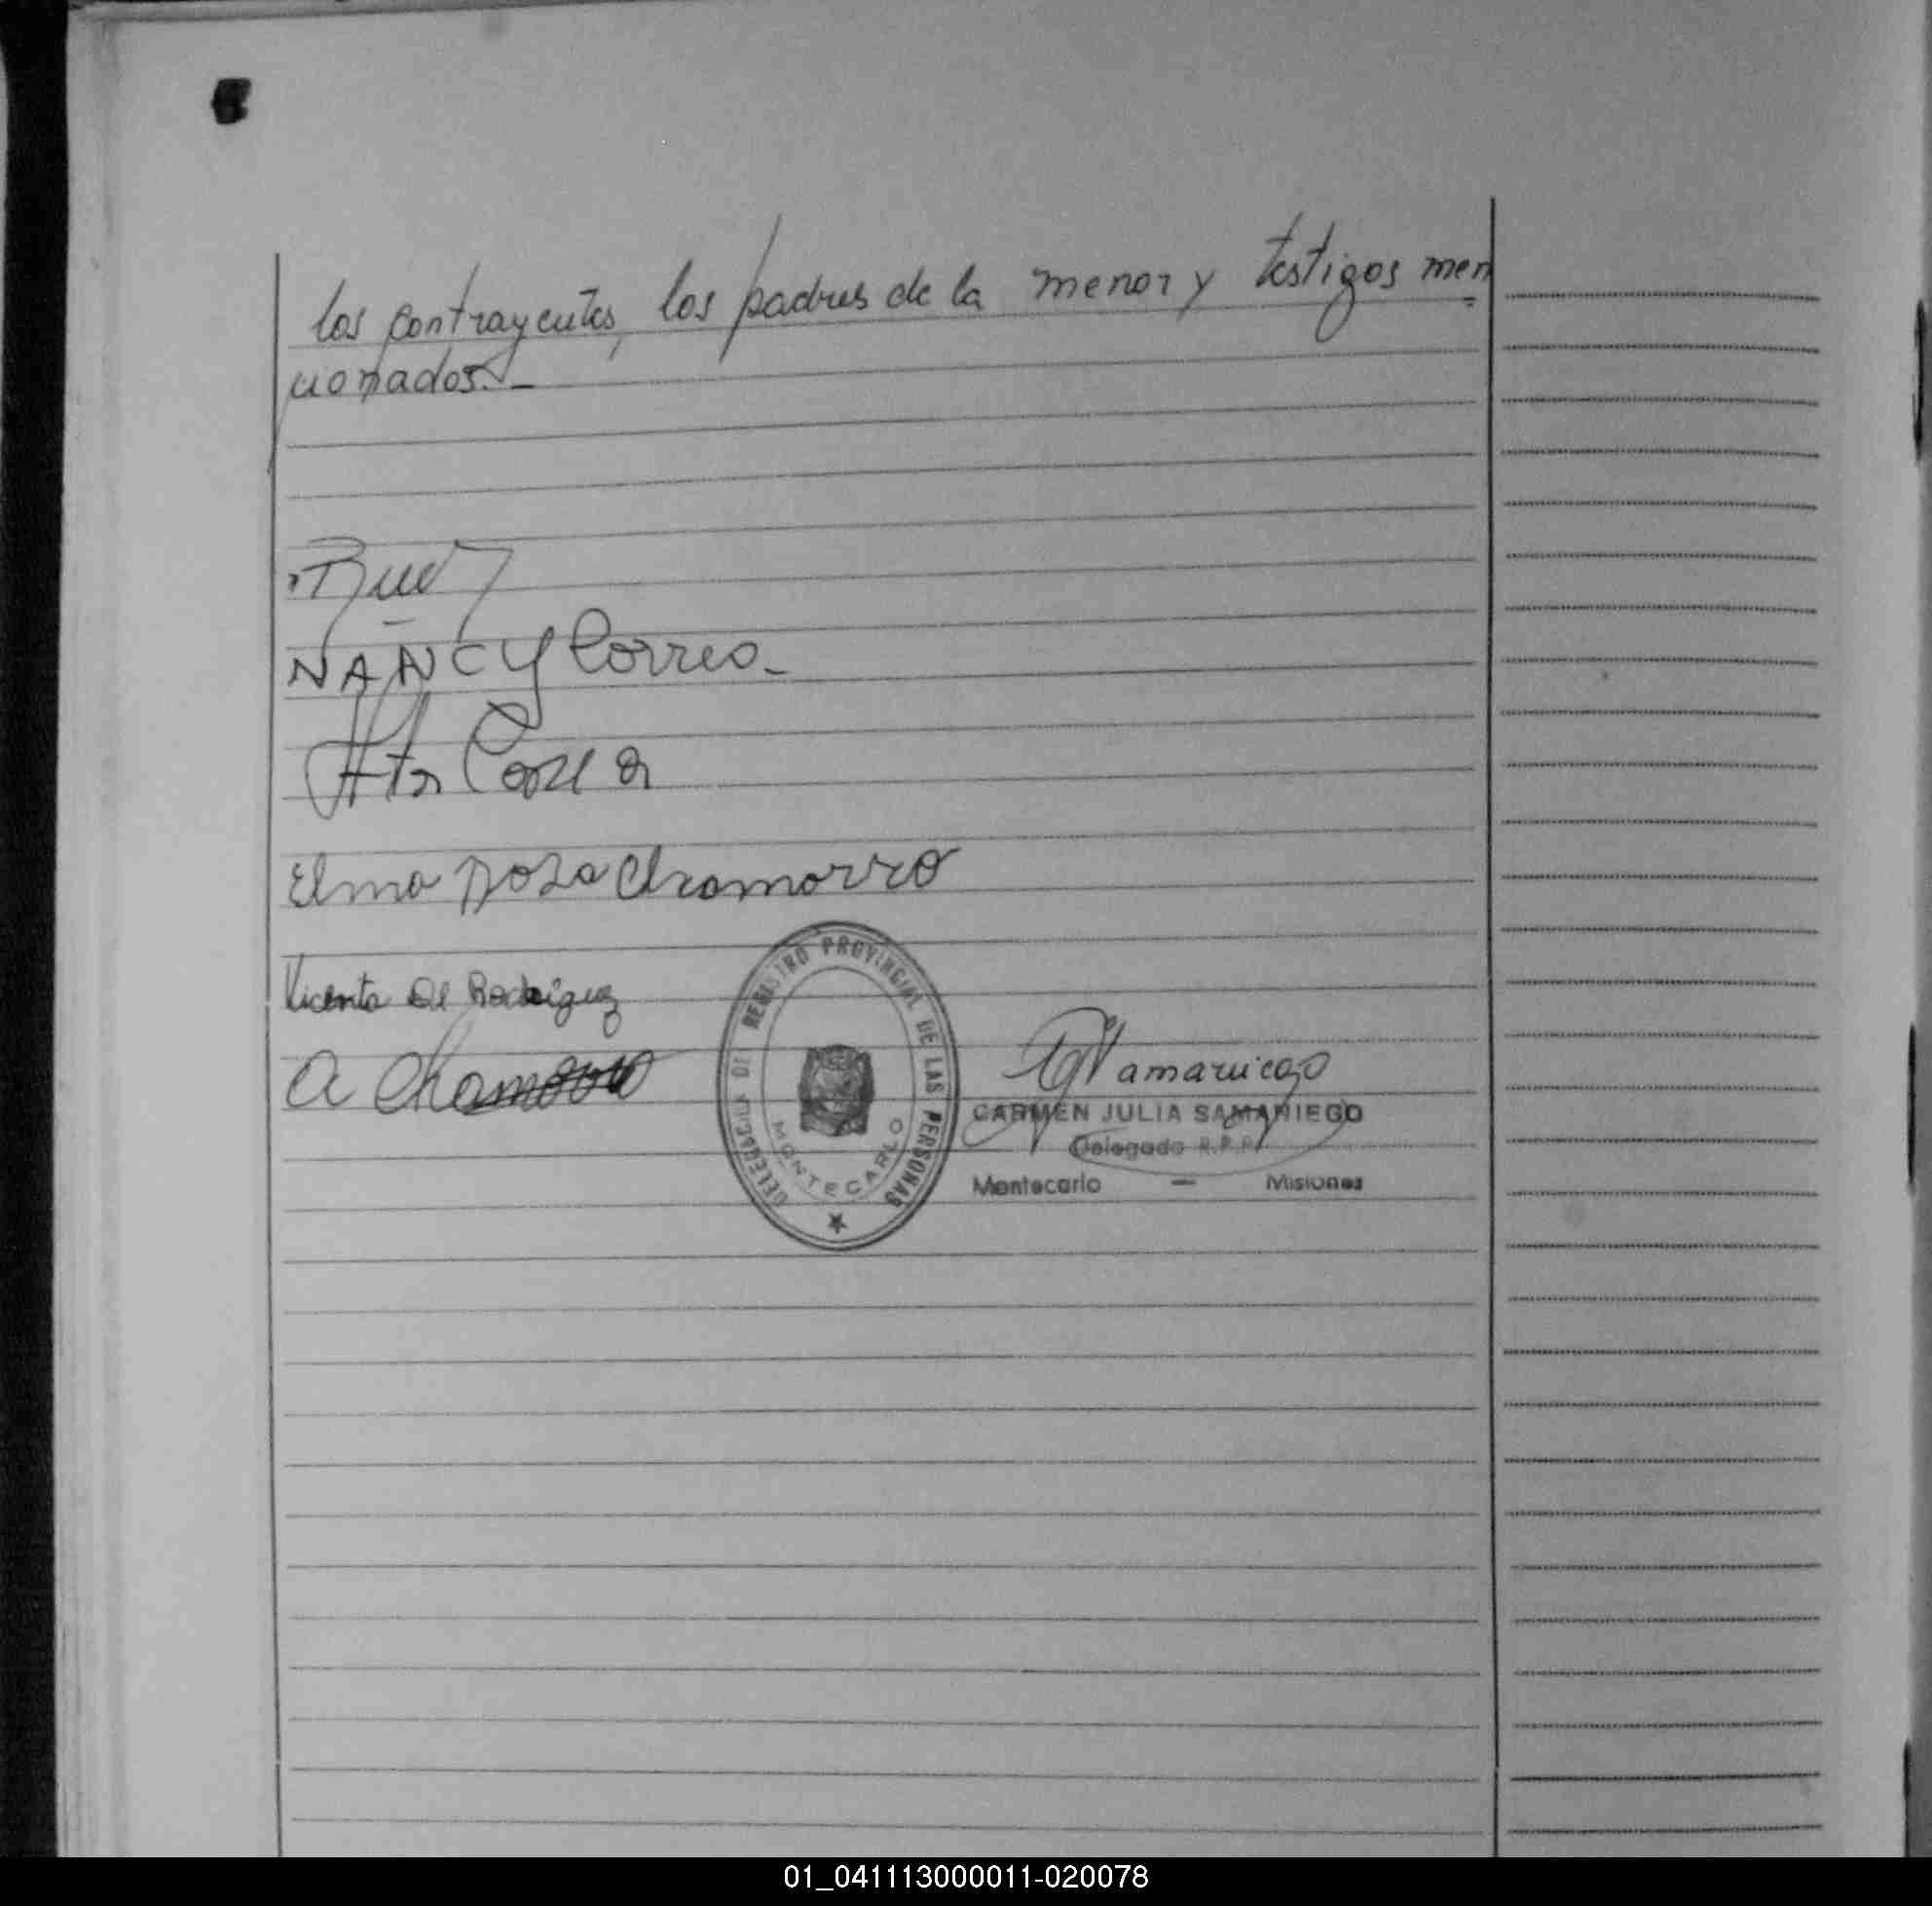 los contrayentes, los padres de la menor y testigos men=
cionados.-
NANCY Correa-
Elma Rosa Chamorro
Vicenta De Rodriguez
A Chamorro
DELEGACION DEL REGISTRO PROVINCIAL DE LAS PERSONAS
MONTECARLO
CARMEN JULIA SAMANIEGO
Delegada R.P.P.
Montecarlo - Misiones
01_041113000011-020078